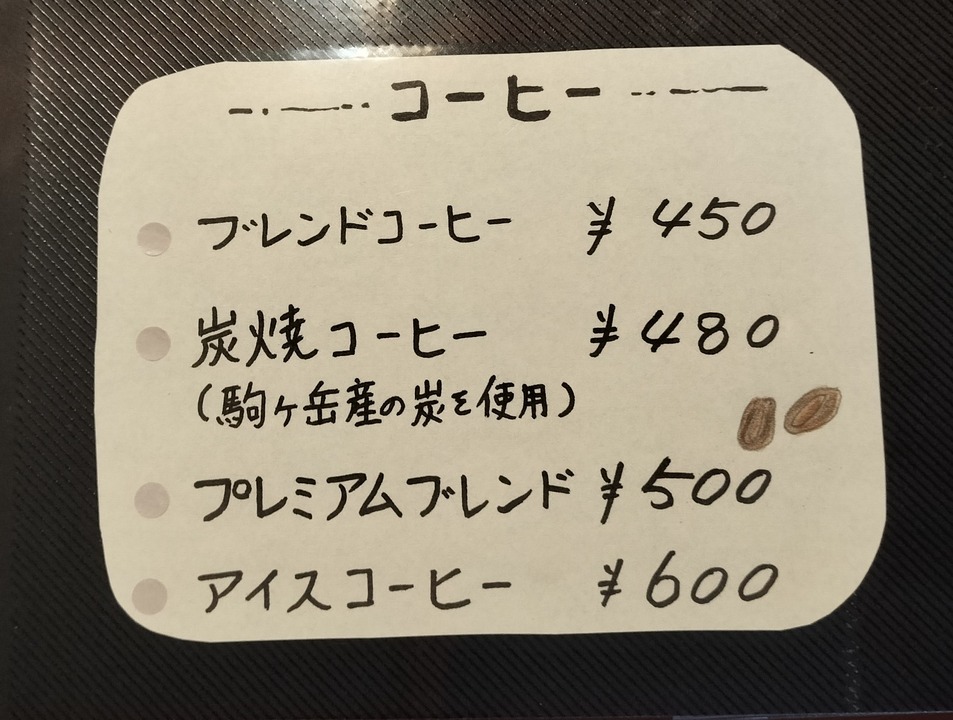 コーヒー
ブレンドコーヒー ¥450
炭焼コーヒー ¥480
(駒ヶ岳産の炭を使用)
プレミアムブレンド ¥500
アイスコーヒー ¥600